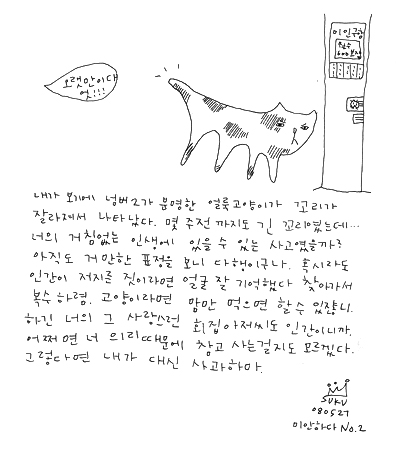 오랫만이다
엇!!!
미인구함
내가 보기에 넘버2가 분명한 얼룩고양이가 꼬리가
잘라져서 나타났다. 몇 주전 까지도 긴 꼬리였는데...
너의 거침없는 인생에 있을 수 있는 사고였을까?
아직도 거만한 표정을 보니 다행이구나. 혹시라도
인간이 저지른 짓이라면 얼굴 잘 기억했다 찾아가서
복수하렴. 고양이라면 맘만 먹으면 할 수 있잖니.
하긴 너의 그 사랑스런 횟집아저씨도 인간이니까.
어쩌면 너 의리때문에 참고 사는걸지도 모르겠다.
그렇다면 내가 대신 사과하마.
SUKU
080527
미안하다 No.2